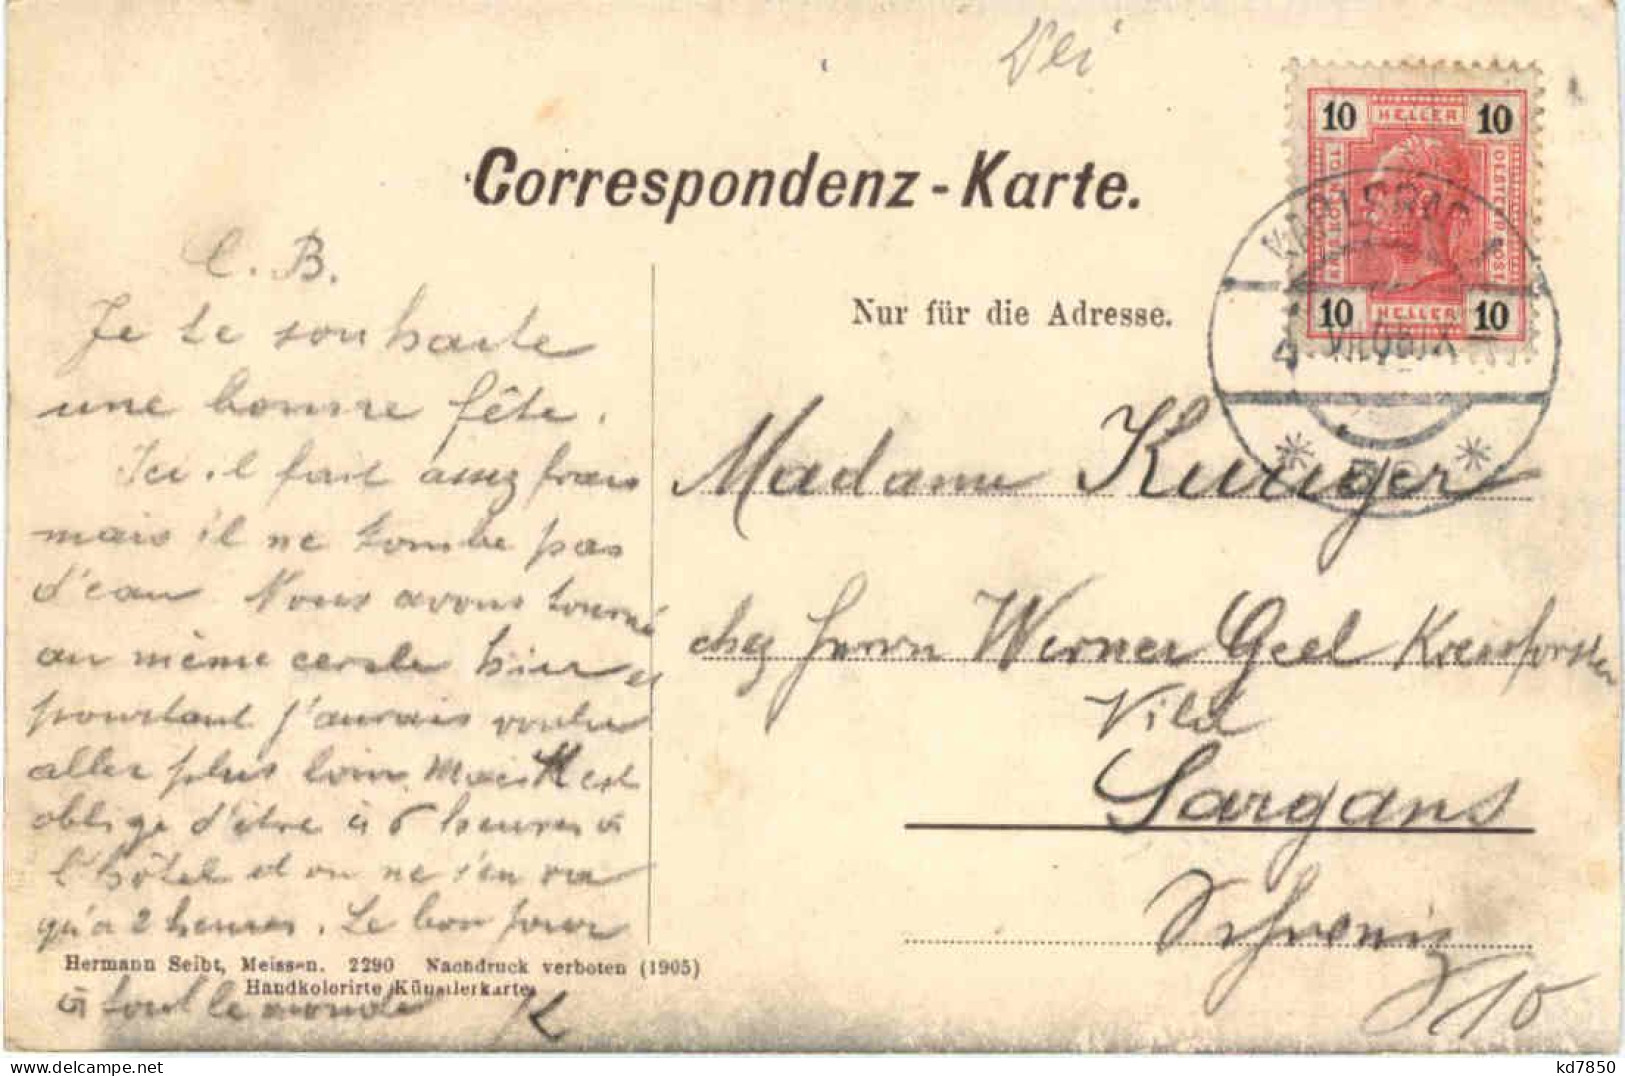 Correspondenz-Karte.
Nur für die Adresse.
10 HELLER 10
10 HELLER 10
KARLSBAD
C. B.
Je te souhaite
une bonne fête.
Ici il fait assez frais
mais il ne tombe pas
d'eau. Nous avons tourné
au même cercle hier et
pourtant j'aurais voulu
aller plus loin. Mais K est
oblige d'être à 6 heures à
l'hôtel et on ne s'en va
qu'a 2 heures. Le bon jour
à tout le monde K
Madame Kunger
chez Herrn Werner Geel
Vild
Sargans
Schweiz
Hermann Seibt, Meissen. 2290 Nachdruck verboten (1905)
Handkolorirte Künstlerkarte
kd7850